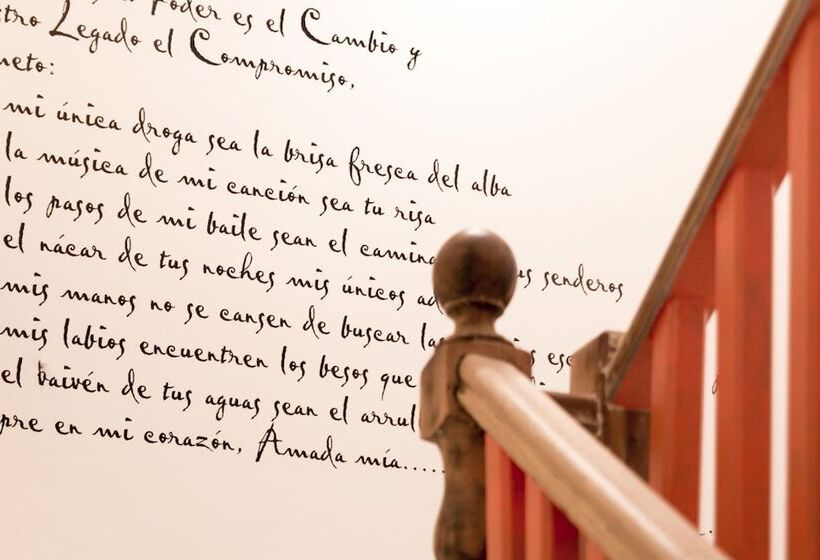 Poder es el Cambio y
tro Legado el Compromiso,
neto:
mi única droga sea la brisa fresca del alba
la música de mi canción sea tu risa
los pasos de mi baile sean el camina us senderos
el nácar de tus noches mis únicos ad
mis manos no se cansen de buscar la s ese
mis labios encuentren los besos que
el baivén de tus aguas sean el arrul
pre en mi corazón, Amada mía.....